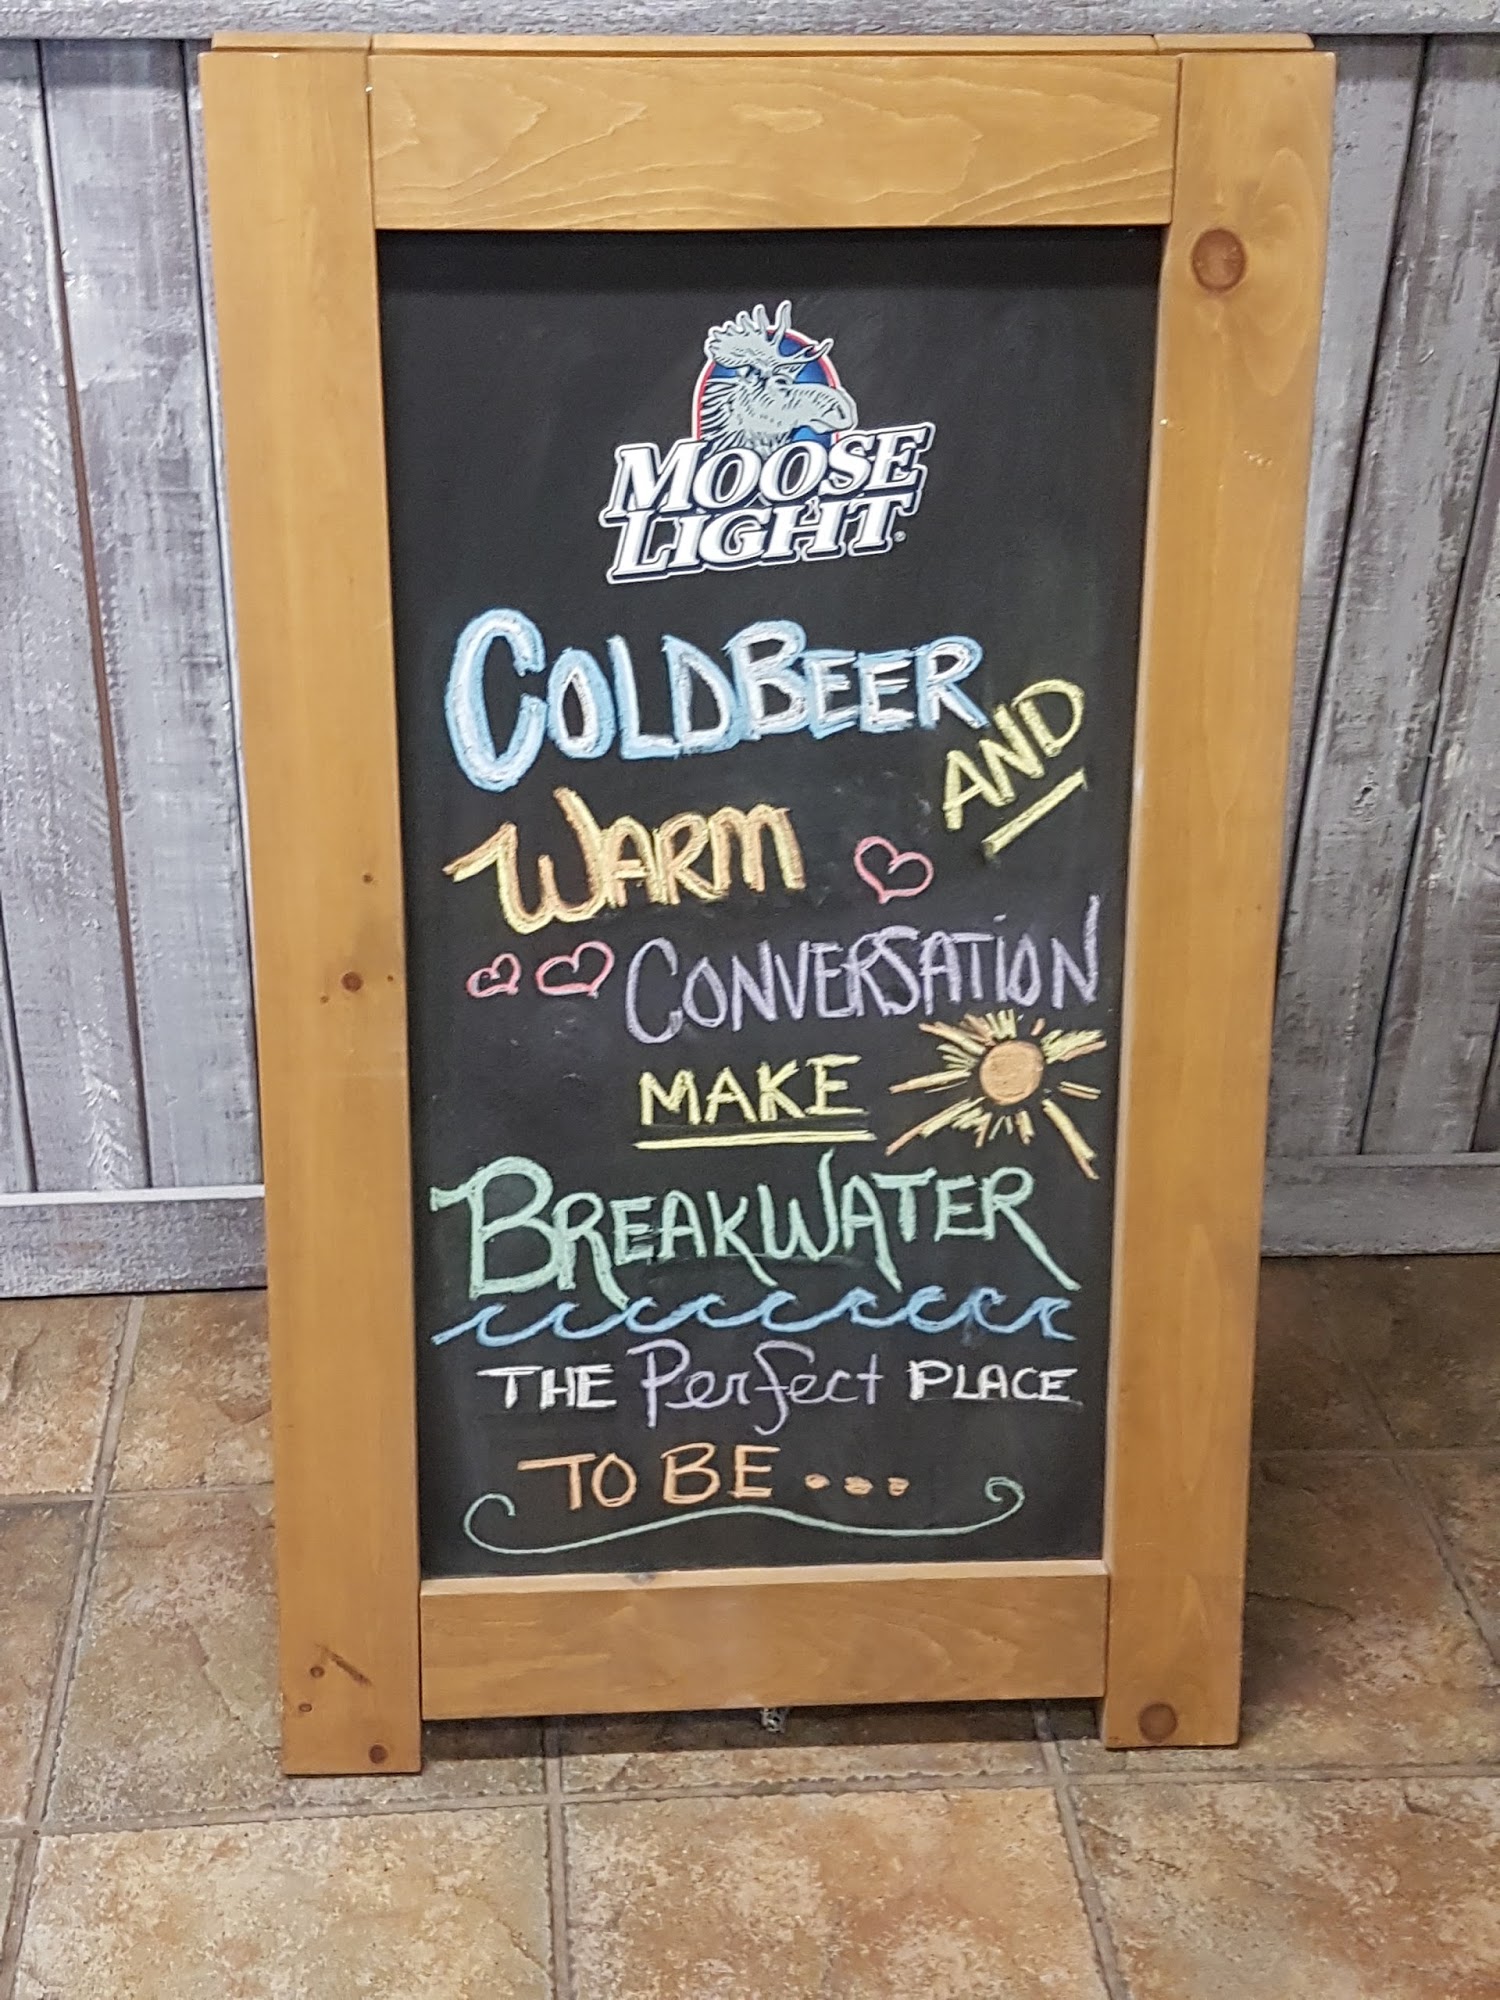 MOOSE
LIGHT
COLD BEER
AND
WARM
CONVERSATION
MAKE
BREAKWATER
THE Perfect PLACE
TO BE...